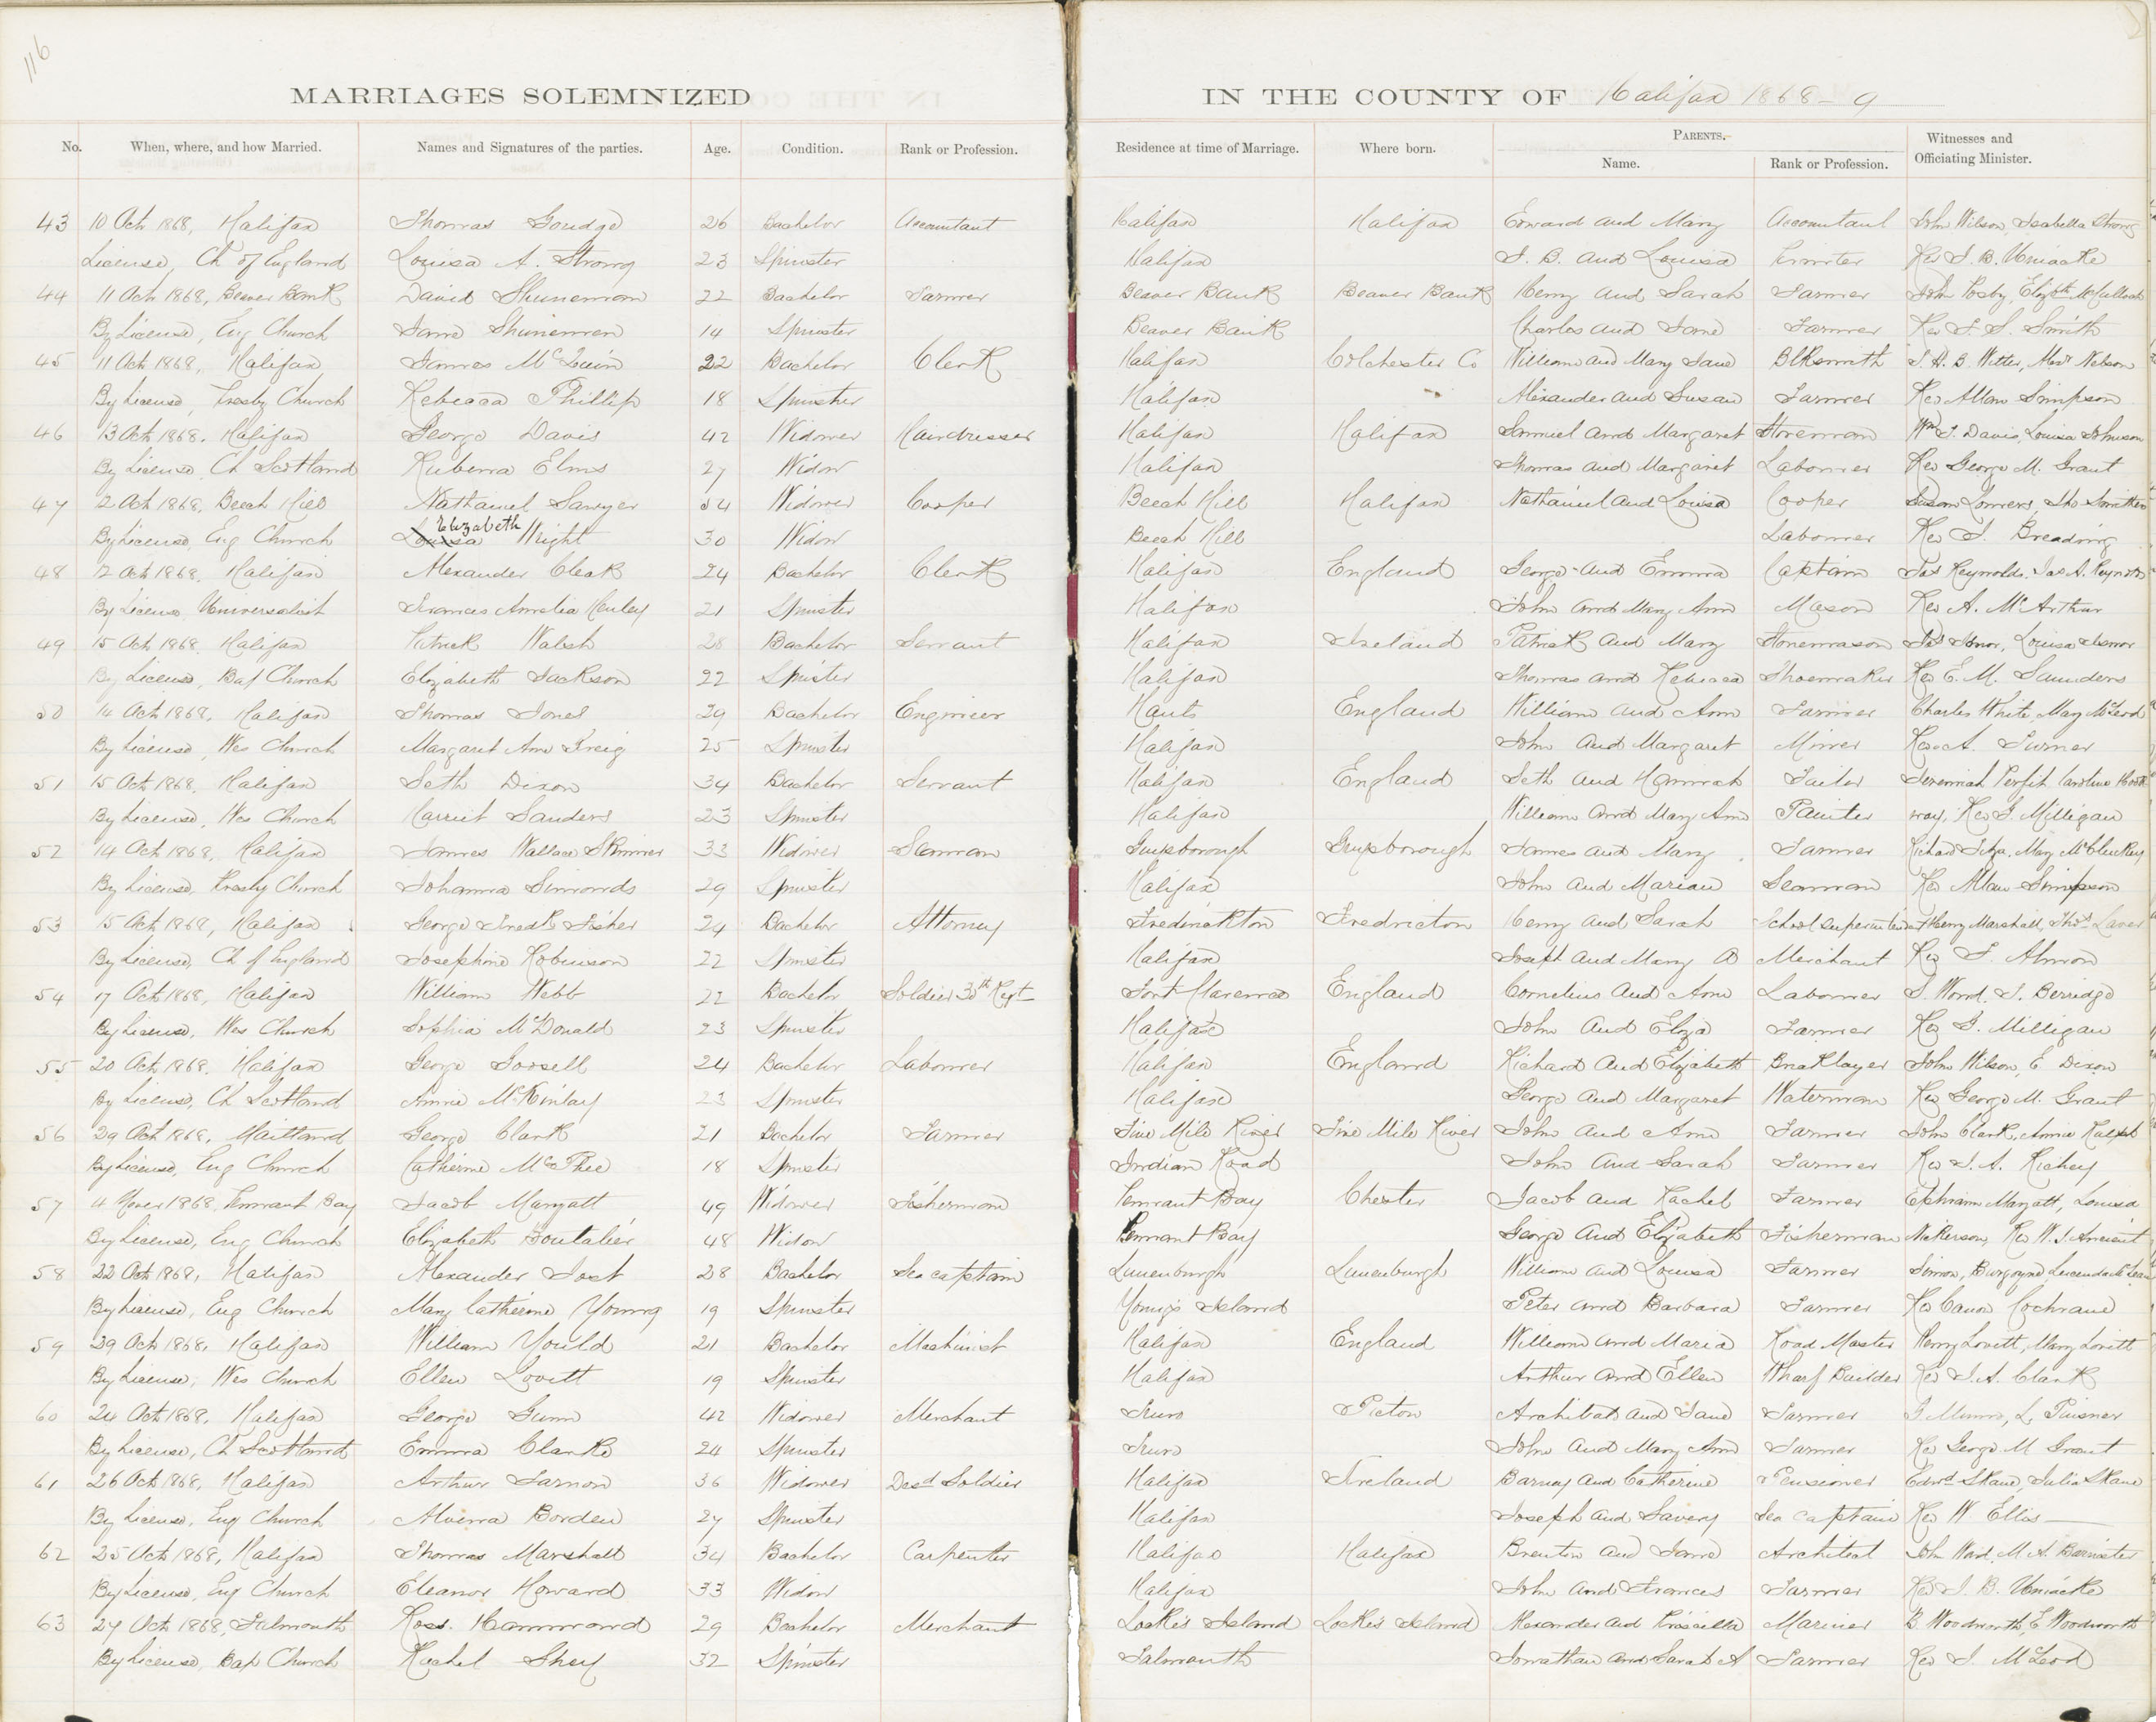 116
MARRIAGES SOLEMNIZED IN THE COUNTY OF Halifax 1868-9
No. When, where, and how Married. Names and Signatures of the parties. Age. Condition. Rank or Profession. Residence at time of Marriage. Where born. PARENTS. Name. Rank or Profession. Witnesses and Officiating Minister.
43 10 Oct 1868, Halifax Thomas Goudge 26 Bachelor Accountant Halifax Halifax Edward and Mary Accountant John Wilson, Isabella Strong
License, Ch of England Louisa A. Strong 23 Spinster Halifax J. B. and Louisa Printer Rev J. B. Uniacke
44 11 Oct 1868, Beaver Bank David Shunemon 22 Bachelor Farmer Beaver Bank Beaver Bank Henry and Sarah Farmer John Posby, Elizbth McCulloch
By License, Eng Church Jane Shunemen 14 Spinster Beaver Bank Charles and Jane Farmer Rev T. S. Smith
45 11 Oct 1868, Halifax James McQuin 22 Bachelor Clerk Halifax Colchester Co William and Mary Jane Blksmith J. H. B. Witter, Nelson
By License, Presby Church Rebecca Phillip 18 Spinster Halifax Alexander and Susan Farmer Rev Allan Simpson
46 13 Oct 1868. Halifax George Davis 42 Widower Hairdresser Halifax Halifax Samuel and Margaret Storeman Wm J. Davis, Louisa Johnson
By License, Ch Scotland Ruberra Elms 27 Widow Halifax Thomas and Margaret Laborer Rev George M. Grant
47 2 Oct 1868, Beech Hill Nathaniel Sawyer 54 Widower Cooper Beech Hill Halifax Nathaniel and Louisa Cooper
By License, Eng Church Elizabeth Wright 30 Widow Beech Hill Laborer Rev J. Breading
48 12 Oct 1868, Halifax Alexander Cleak 24 Bachelor Clerk Halifax England George and Emma Captain Jas Reynolds, Jas A. Reynolds
By License Universalist Frances Amelia Henley 21 Spinster Halifax John and Mary Ann Mason Rev A. McArthur
49 15 Oct 1868, Halifax Patrick Walsh 28 Bachelor Servant Halifax Ireland Patrick and Mary Stonemason Louisa
By License, Bap Church Elizabeth Jackson 22 Spinster Halifax Thomas and Rebecca Shoemaker Rev E. M. Saunders
50 14 Oct 1868, Halifax Thomas Jones 29 Bachelor Engineer Hants England William and Ann Farmer Charles White, Mary McLeod
By License, Wes Church Margaret Ann Greig 25 Spinster Halifax John and Margaret Miner Rev A. Turner
51 15 Oct 1868, Halifax Seth Dixon 34 Bachelor Servant Halifax England Seth and Hannah Tailor Jeremiah Perfit, Caroline
By License, Wes Church Harriet Sanders 23 Spinster Halifax William and Mary Ann Painter way, Rev G. Milligan
52 14 Oct 1868, Halifax James Wallace Skinner 33 Widower Seaman Guysborough Guysborough James and Mary Farmer Richard Mary McCluckey
By License, Presby Church Johanna Simonds 29 Spinster Halifax John and Marian Seaman Rev Allan Simpson
53 15 Oct 1868, Halifax George Fredk Fisher 24 Bachelor Attorney Fredrickton Fredricton Henry and Sarah School Superintendent Henry Marshall, Thos Laver
By License, Ch of England Josephine Robinson 22 Spinster Halifax Joseph and Mary B Merchant Rev J. Almon
54 17 Oct 1868, Halifax William Webb 22 Bachelor Soldier 30th Regt Fort Clarence England Cornelius and Ann Laborer S. Word, J. Berridge
By License, Wes Church Sophia McDonald 23 Spinster Halifax John and Eliza Farmer Rev G. Milligan
55 20 Oct 1868, Halifax George Gossell 24 Bachelor Laborer Halifax England Richard and Elizabeth Bricklayer John Wilson, E. Dixon
By License, Ch Scotland Annie McKinlay 23 Spinster Halifax George and Margaret Waterman Rev George M. Grant
56 29 Oct 1868, Maitland George Clark 21 Bachelor Farmer Five Mile River Five Mile River John and Ann Farmer John Clark, Annie
By License, Eng Church Catherine McPhee 18 Spinster Indian Road John and Sarah Farmer Rev J. A. Richey
57 4 Nover 1868, Pennant Bay Jacob Maryatt 49 Widower Fisherman Pennant Bay Chester Jacob and Rachel Farmer Ephraim Maryatt, Louisa
By License, Eng Church Elizabeth Boutalier 48 Widow Pennant Bay George and Elizabeth Fisherman Nickerson, Rev W. J. Ancient
58 22 Oct 1868, Halifax Alexander Jost 28 Bachelor Sea captain Lunenburgh Lunenburgh William and Louisa Farmer Simon, Burgoyne, Lucinda McLean
By License, Eng Church Mary Catherine Young 19 Spinster Young's Island Peter and Barbara Farmer Rev Canon Cochrane
59 29 Oct 1868, Halifax William Yould 21 Bachelor Machinist Halifax England William and Maria Road Master Henry Lovett, Mary Lovitt
By License, Wes Church Ellen Lovett 19 Spinster Halifax Arthur and Ellen Wharf Builder Rev J. A. Clark
60 24 Oct 1868, Halifax George Gunn 42 Widower Merchant Truro Picton Archibald and Jane Farmer G Munro, L. Puisner
By License, Ch Scotland Emma Clarke 24 Spinster Truro John and Mary Ann Farmer Rev George M Grant
61 26 Oct 1868, Halifax Arthur Farnon 36 Widower Desd Soldier Halifax Ireland Barney and Catherine Pensioner Edwd Skane, Julia Skane
By License, Eng Church Alverra Borden 27 Spinster Halifax Joseph and Savery Sea captain Rev W Ellis
62 25 Oct 1868, Halifax Thomas Marshall 34 Bachelor Carpenter Halifax Halifax Brenton and Jane Architect John Ward, M. A. Bannister
By License, Eng Church Eleanor Howard 33 Widow Halifax John and Frances Farmer Rev J. B. Uniacke
63 27 Oct 1868, Falmouth Ross. Hammond 29 Bachelor Merchant Locke's Island Locke's Island Alexander and Priscilla Mariner B Woodworth, E Woodworth
By License, Bap Church Rachel Shey 32 Spinster Falmouth Jonathan and Sarah A Farmer Rev J. McLeod